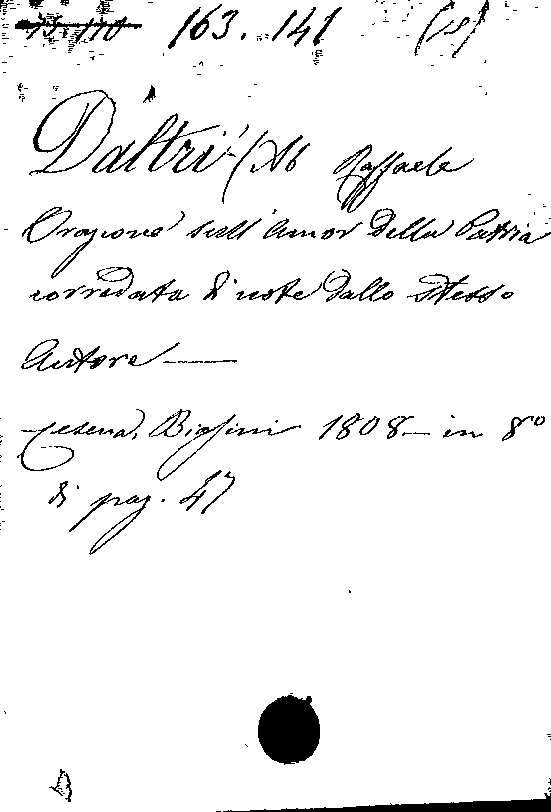 163. 141 (15)
Daltri (Ab Raffaele
Orazione sull'amor della Patria
corredata di note dallo stesso
Autore —
Cesena, Biasini 1808 — in 8º
di pag. 47